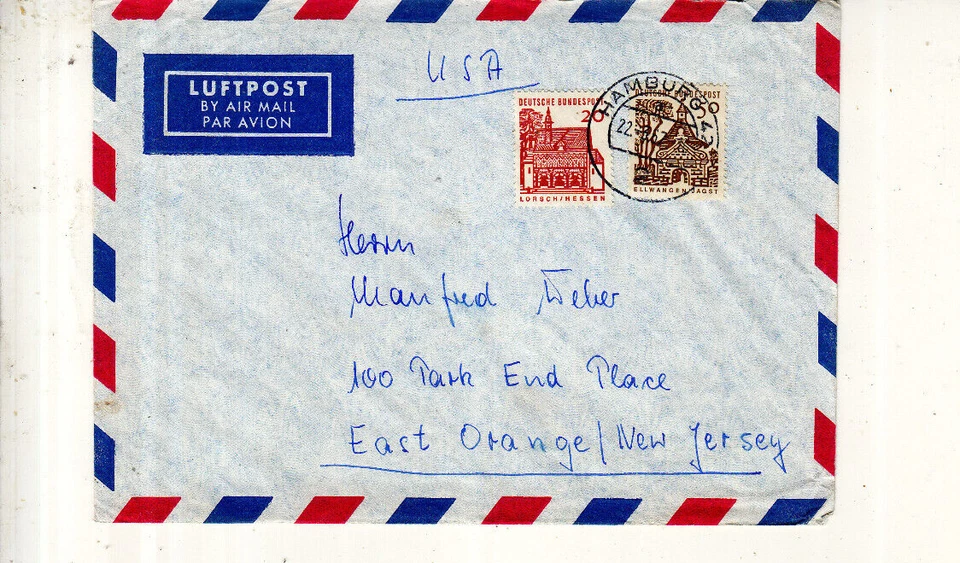 LUFTPOST
BY AIR MAIL
PAR AVION
USA
DEUTSCHE BUNDESPOST
20
LORSCH/HESSEN
DEUTSCHE BUNDESPOST
ELLWANGEN/JAGST
HAMBURG
Herrn
Manfred Weber
100 Park End Place
East Orange/New Jersey